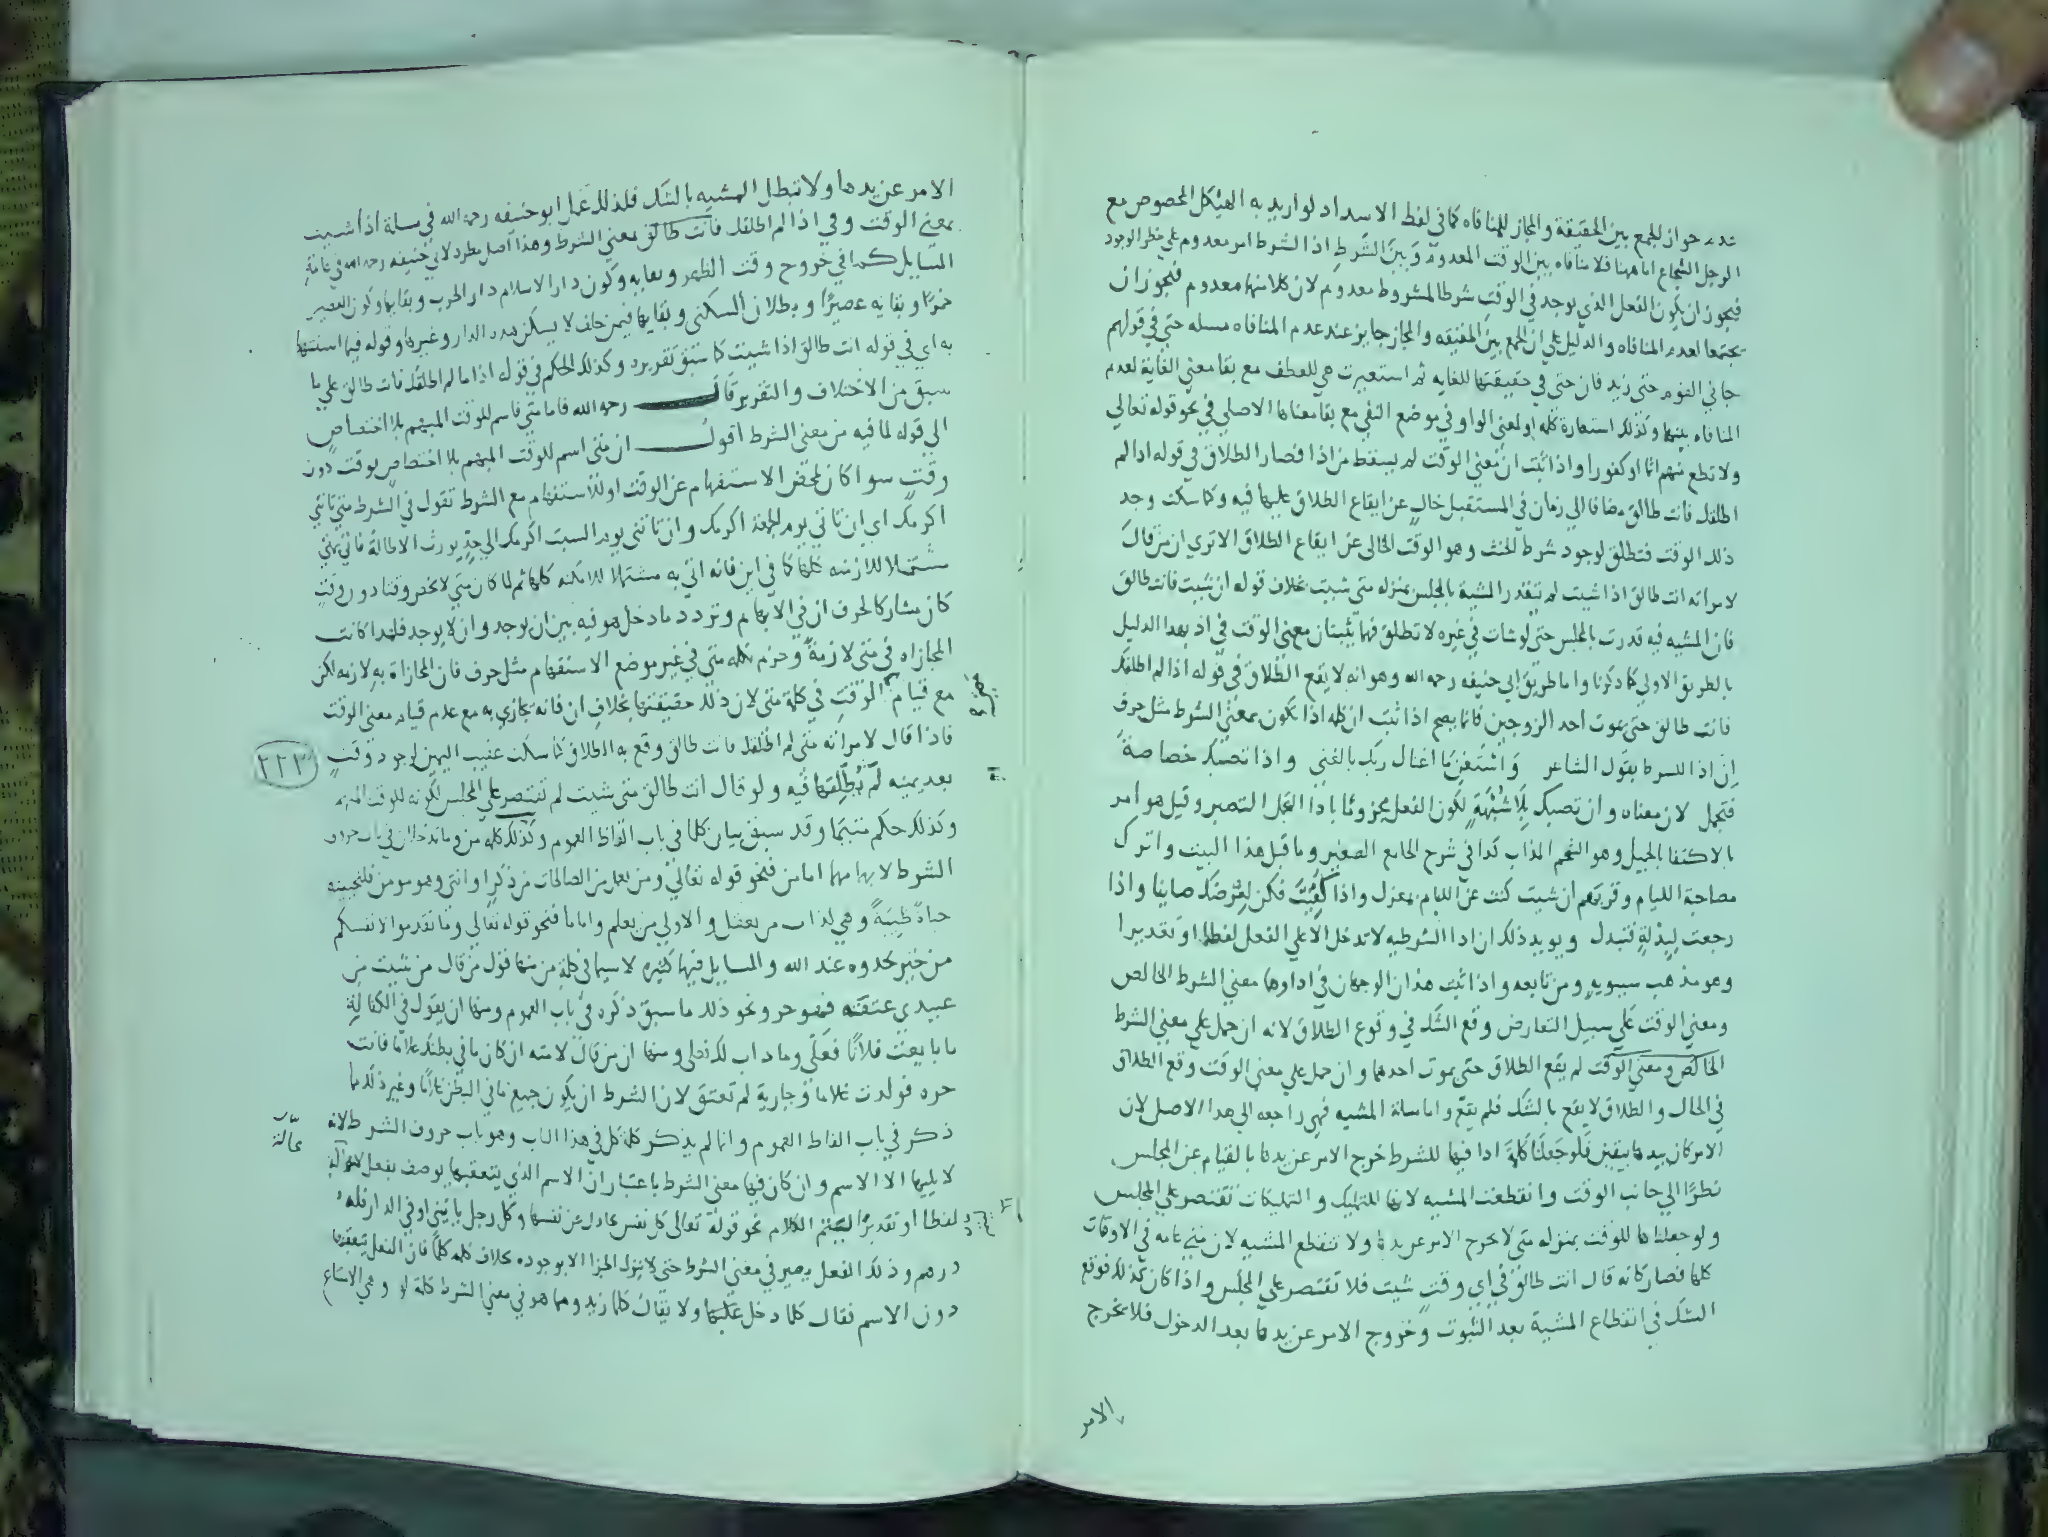 جواز الجمع بين الحقيقة والمجاز للمنافاه كما في لفظ الاسد اد لو اريد به الهيكل المخصوص مع
الرجل الشجاع اما ههنا فلا منافاه بين الوقت المعدوم وبين الشرط اذ الشرط امر معدوم علي خطر الوجود
فيجوز ان يكون الفعل الذي يوجد في الوقت شرطا لمشروط معدوم لان كلا منهما معدوم فيجوز ان
يجتمعا لعدم المنافاه والدليل علي ان الجمع بين الحقيقه والمجاز جايز عند عدم المنافاه مسله حتي في قولهم
جاني القوم حتي زيد فان حتي في حقيقتها للغايه ثم استعيرت هي للعطف مع بقا معني الغاية لعدم
المنافاه بينهما وكذلك استعارة كلمه او لمعني الواو في موضع النفي مع بقا معناها الاصلي في نحو قوله تعالي
ولا تطع منهم اثما او كفورا واذا ثبت ان معني الوقت لم يسقط من اذا فصار الطلاق في قوله اذا لم
اطلقك فانت طالق مضافا الي زمان في المستقبل خال عن ايقاع الطلاق عليها فيه وكما سكت وجد
ذلك الوقت فتطلق لوجود شرط الحنث وهو الوقت الخالي عن ايقاع الطلاق الا تري ان من قال
لامراته انت طالق اذا شيت لم تتقدر المشية بالمجلس بمنزله متي شيت بخلاف قوله ان شيت فانت طالق
فان المشيه فيه قدرت بالمجلس حتي لو شات في غيره لا تطلق فهما يثبتان معني الوقت في اذ بهدا الدليل
بالطريق الاولي كما ذكرنا واما طريق ابي حنيفه رحمه الله وهو انه لا يقع الطلاق في قوله اذا لم اطلقك
فانت طالق حتي يموت احد الزوجين فانما يصح اذا ثبت ان كلمه اذا تكون بمعني الشرط مثل حرف
ان اذا للشرط بقول الشاعر واستغن ما اغناك ربك بالغني واذا تصبك خصاصة
فتجمل لان معناه وان تصبك بلا شبهة لكون الفعل مجزوما باذا التجمل التصبر وقيل هو امر
بالاكتفا بالجميل وهو الشحم المذاب كذا في شرح الجامع الصغير وما قبل هذا البيت واترك
مصاحبة الليام وقربهم ان شيت كنت عن الليام بمعزل واذا كفيت فكن لعرضك صاينا واذا
رجعت لبذلة فتبدل ويويد ذلك ان اذا الشرطيه لا تدخل الا علي الفعل لفظا او تقديرا
وهو مذهب سيبويه ومن تابعه واذا ثبت هذان الوجهان في اذا وهما معني الشرط الخالص
ومعني الوقت علي سبيل التعارض وقع الشك في وقوع الطلاق لانه ان حمل علي معني الشرط
الخالص ومعني الوقت لم يقع الطلاق حتي يموت احدهما وان حمل علي معني الوقت وقع الطلاق
في الحال والطلاق لا يقع بالشك فلم يقع واما مسلة المشيه فهي راجعه الي هدا الاصل لان
الامر كان بيدها بيقين فلو جعلنا كلمة اذا فيها للشرط خرج الامر عن يدها بالقيام عن المجلس
نظرا الي جانب الوقت وانقطعت المشيه لانها للتمليك والتمليكات تقتصر علي المجلس
ولو جعلناها للوقت بمنزله متي لا يخرج الامر عن يدها ولا تنقطع المشيه لان متي عامه في الاوقات
كلها فصار كانه قال انت طالق في اي وقت شيت فلا تقتصر علي المجلس واذا كان كذلك فوقع
الشك في انقطاع المشية بعد الثبوت وخروج الامر عن يدها بعد الدخول فلا يخرج
الامر
الامر عن يدها ولا تبطل المشيه بالشك فلذلك عمل ابو حنيفه رحمه الله في مسلة اذا شيت
بمعني الوقت وفي اذا لم اطلقك فانت طالق بمعني الشرط وهذا اصل مطرد لابي حنيفه رحمه الله في عامة
المسايل كما في خروج وقت الظهر وبقايه وكون دار الاسلام دار الحرب وبقايها وكون العصير
خمرا وبقايه عصيرا وبطلان السكني وبقايها فيمن حلف لا يسكن هذه الدار وغيرها وقوله فيما استشهدا
به اي في قوله انت طالق اذا شيت كما سبق تقريره وكذلك الحكم في قوله اذا ما لم اطلقك فانت طالق علي ما
سبق من الاختلاف والتقرير قال رحمه الله فاما متي فاسم للوقت المبهم بلا اختصاص
الي قوله لما فيه من معني الشرط اقول ان متي اسم للوقت المبهم بلا اختصاص بوقت دون
وقت سوا كان لمحض الاستفهام عن الوقت او للاستفهام مع الشرط تقول في الشرط متي تاتني
اكرمك اي ان تاتني يوم الجمعة اكرمك وان تاتني يوم السبت اكرمك الي حد يورث الاطالة فاتي بمتي
مشتملا للازمنه كلها كما في اين فانه اتي به مشتملا للامكنه كلها ثم لما كان متي لا يختص وقتا دون وقت
كان مشاركا لحرف ان في الابهام وتردد ما دخل هو فيه بين ان يوجد وان لا يوجد فلهدا كانت
المجازاه في متي لازمة وجزم بكلمه متي في غير موضع الاستفهام مثل حرف فان المجازاة به لازمه لكن
مع قيام الوقت في كلمة متي لان ذلك حقيقتها بخلاف ان فانه يجازي به مع عدم قيام معني الوقت
فاذا قال لامراته متي لم اطلقك فانت طالق وقع به الطلاق كما سكت عقيب اليمين لوجود وقت
٢٢٣
بعد يمينه لم يطلقها فيه ولو قال انت طالق متي شيت لم تقتصر علي المجلس لكونه للوقت المبهم
وكذلك حكم متيما وقد سبق بيان كلما في باب الفاظ العموم وكذلك كلمه من وما تدخلان في باب حروف
الشرط لابهامهما اما من فنحو قوله تعالي ومن يعمل من الصالحات من ذكر او انثي وهو مومن فلنحيينه
حياة طيبة وهي لذات من يعقل والاولي من يعلم واما ما فنحو قوله تعالي وما تقدموا لانفسكم
من خير تجدوه عند الله والمسايل فيها كثيره لا سيما في كلمة من منها قول من قال من شيت من
عبيدي عتقته فهو حر ونحو ذلك ما سبق ذكره في باب العموم ومنها ان يقول في الكفالة
ما بايعت فلانا فعلي وما داب لك فعلي ومنها ان من قال لامته ان كان ما في بطنك غلاما فانت
حره فولدت غلاما وجارية لم تعتق لان الشرط ان يكون جميع ما في البطن غلاما وغير ذلك مما
ذكر في باب الفاظ العموم وانما لم يذكر كلمة كل في هذا الباب وهو باب حروف الشرط لانه
لا يليها الا الاسم وان كان فيها معني الشرط باعتبار ان الاسم الذي يتعقبها يوصف بفعل لا محالة
لفظا او تقديرا ليتم الكلام نحو قوله تعالي كل نفس تجادل عن نفسها وكل رجل ياتيني او في الدار فله
درهم وذلك الفعل يصير في معني الشرط حتي لا ينزل الجزا الا بوجوده بخلاف كلمه كلما فان الفعل يتعقبها
دون الاسم فقال كلما دخل عليها ولا يقال كلما زيد ومما هو في معني الشرط كلمة لو وهي لامتناع